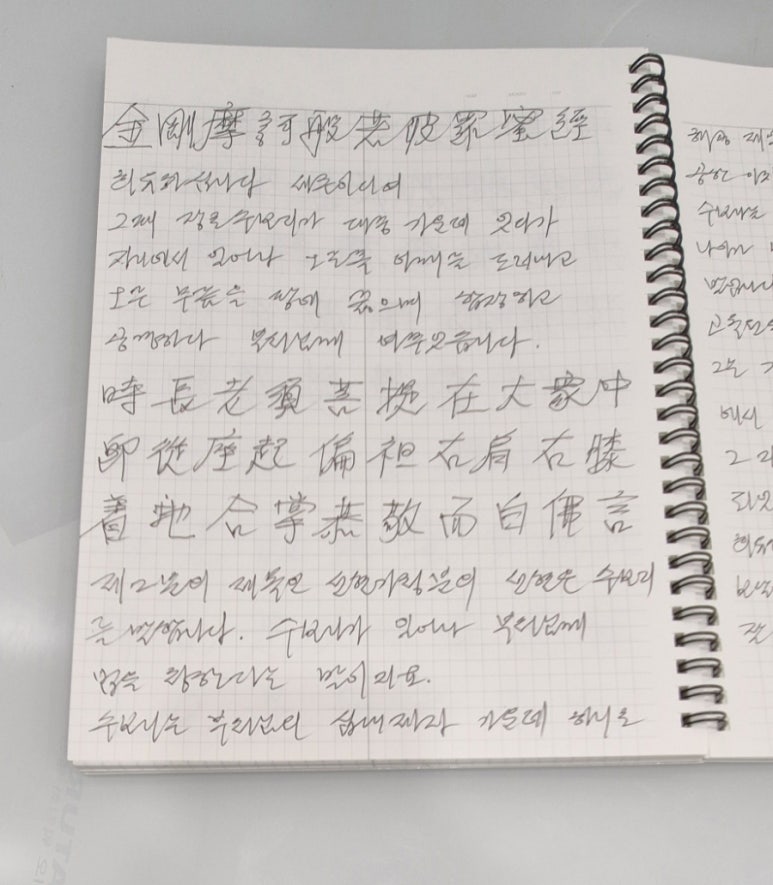 金剛摩訶般若波羅蜜經
희유하십니다 세존이시여
그때 장로수보리가 대중 가운데 있다가
자리에서 일어나 오른쪽 어깨를 드러내고
오른 무릎을 땅에 꿇으며 합장하고
공경하다 부처님께 여쭈었습니다.
時長老須菩提在大衆中
卽從座起偏袒右肩右膝
着地合掌恭敬而白佛言
제2분의 제목인 선현기청분의 선현은 수보리
를 말합니다. 수보리가 일어나 부처님께
법을 청한다는 말이지요.
수보리는 부처님의 십대제자 가운데 하나로
해공
수보리는
그는
에서